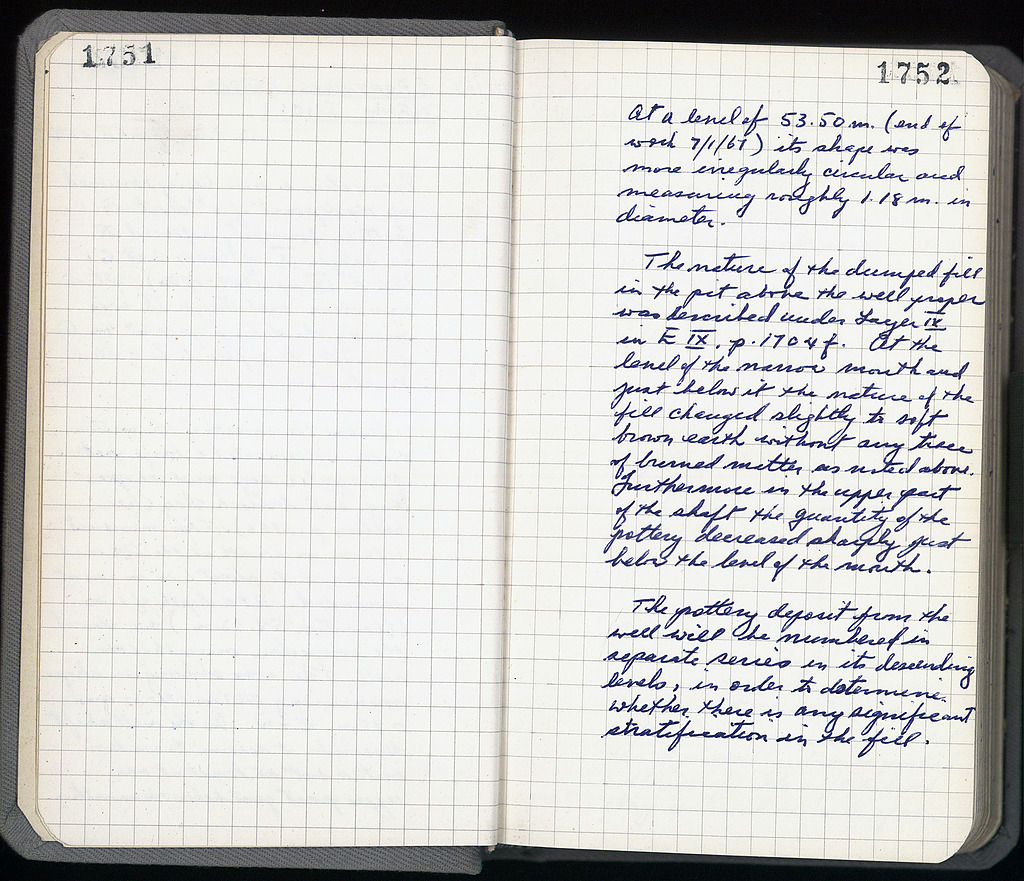 1751
1752
At a level of 53.50 m. (end of
work 7/1/67) its shape was
more irregularly circular and
measuring roughly 1.18 m. in
diameter.
The nature of the dumped fill
in the pit above the well proper
was described under Layer IX
in E IX, p. 1704 f. At the
level of the narrow mouth and
just below it the nature of the
fill changed slightly to soft
brown earth without any trace
of burned matter as noted above.
Furthermore in the upper part
of the shaft the quantity of the
pottery decreased sharply just
below the level of the mouth.
The pottery deposit from the
well will be numbered in
separate series in its descending
levels, in order to determine
whether there is any significant
stratification in the fill.